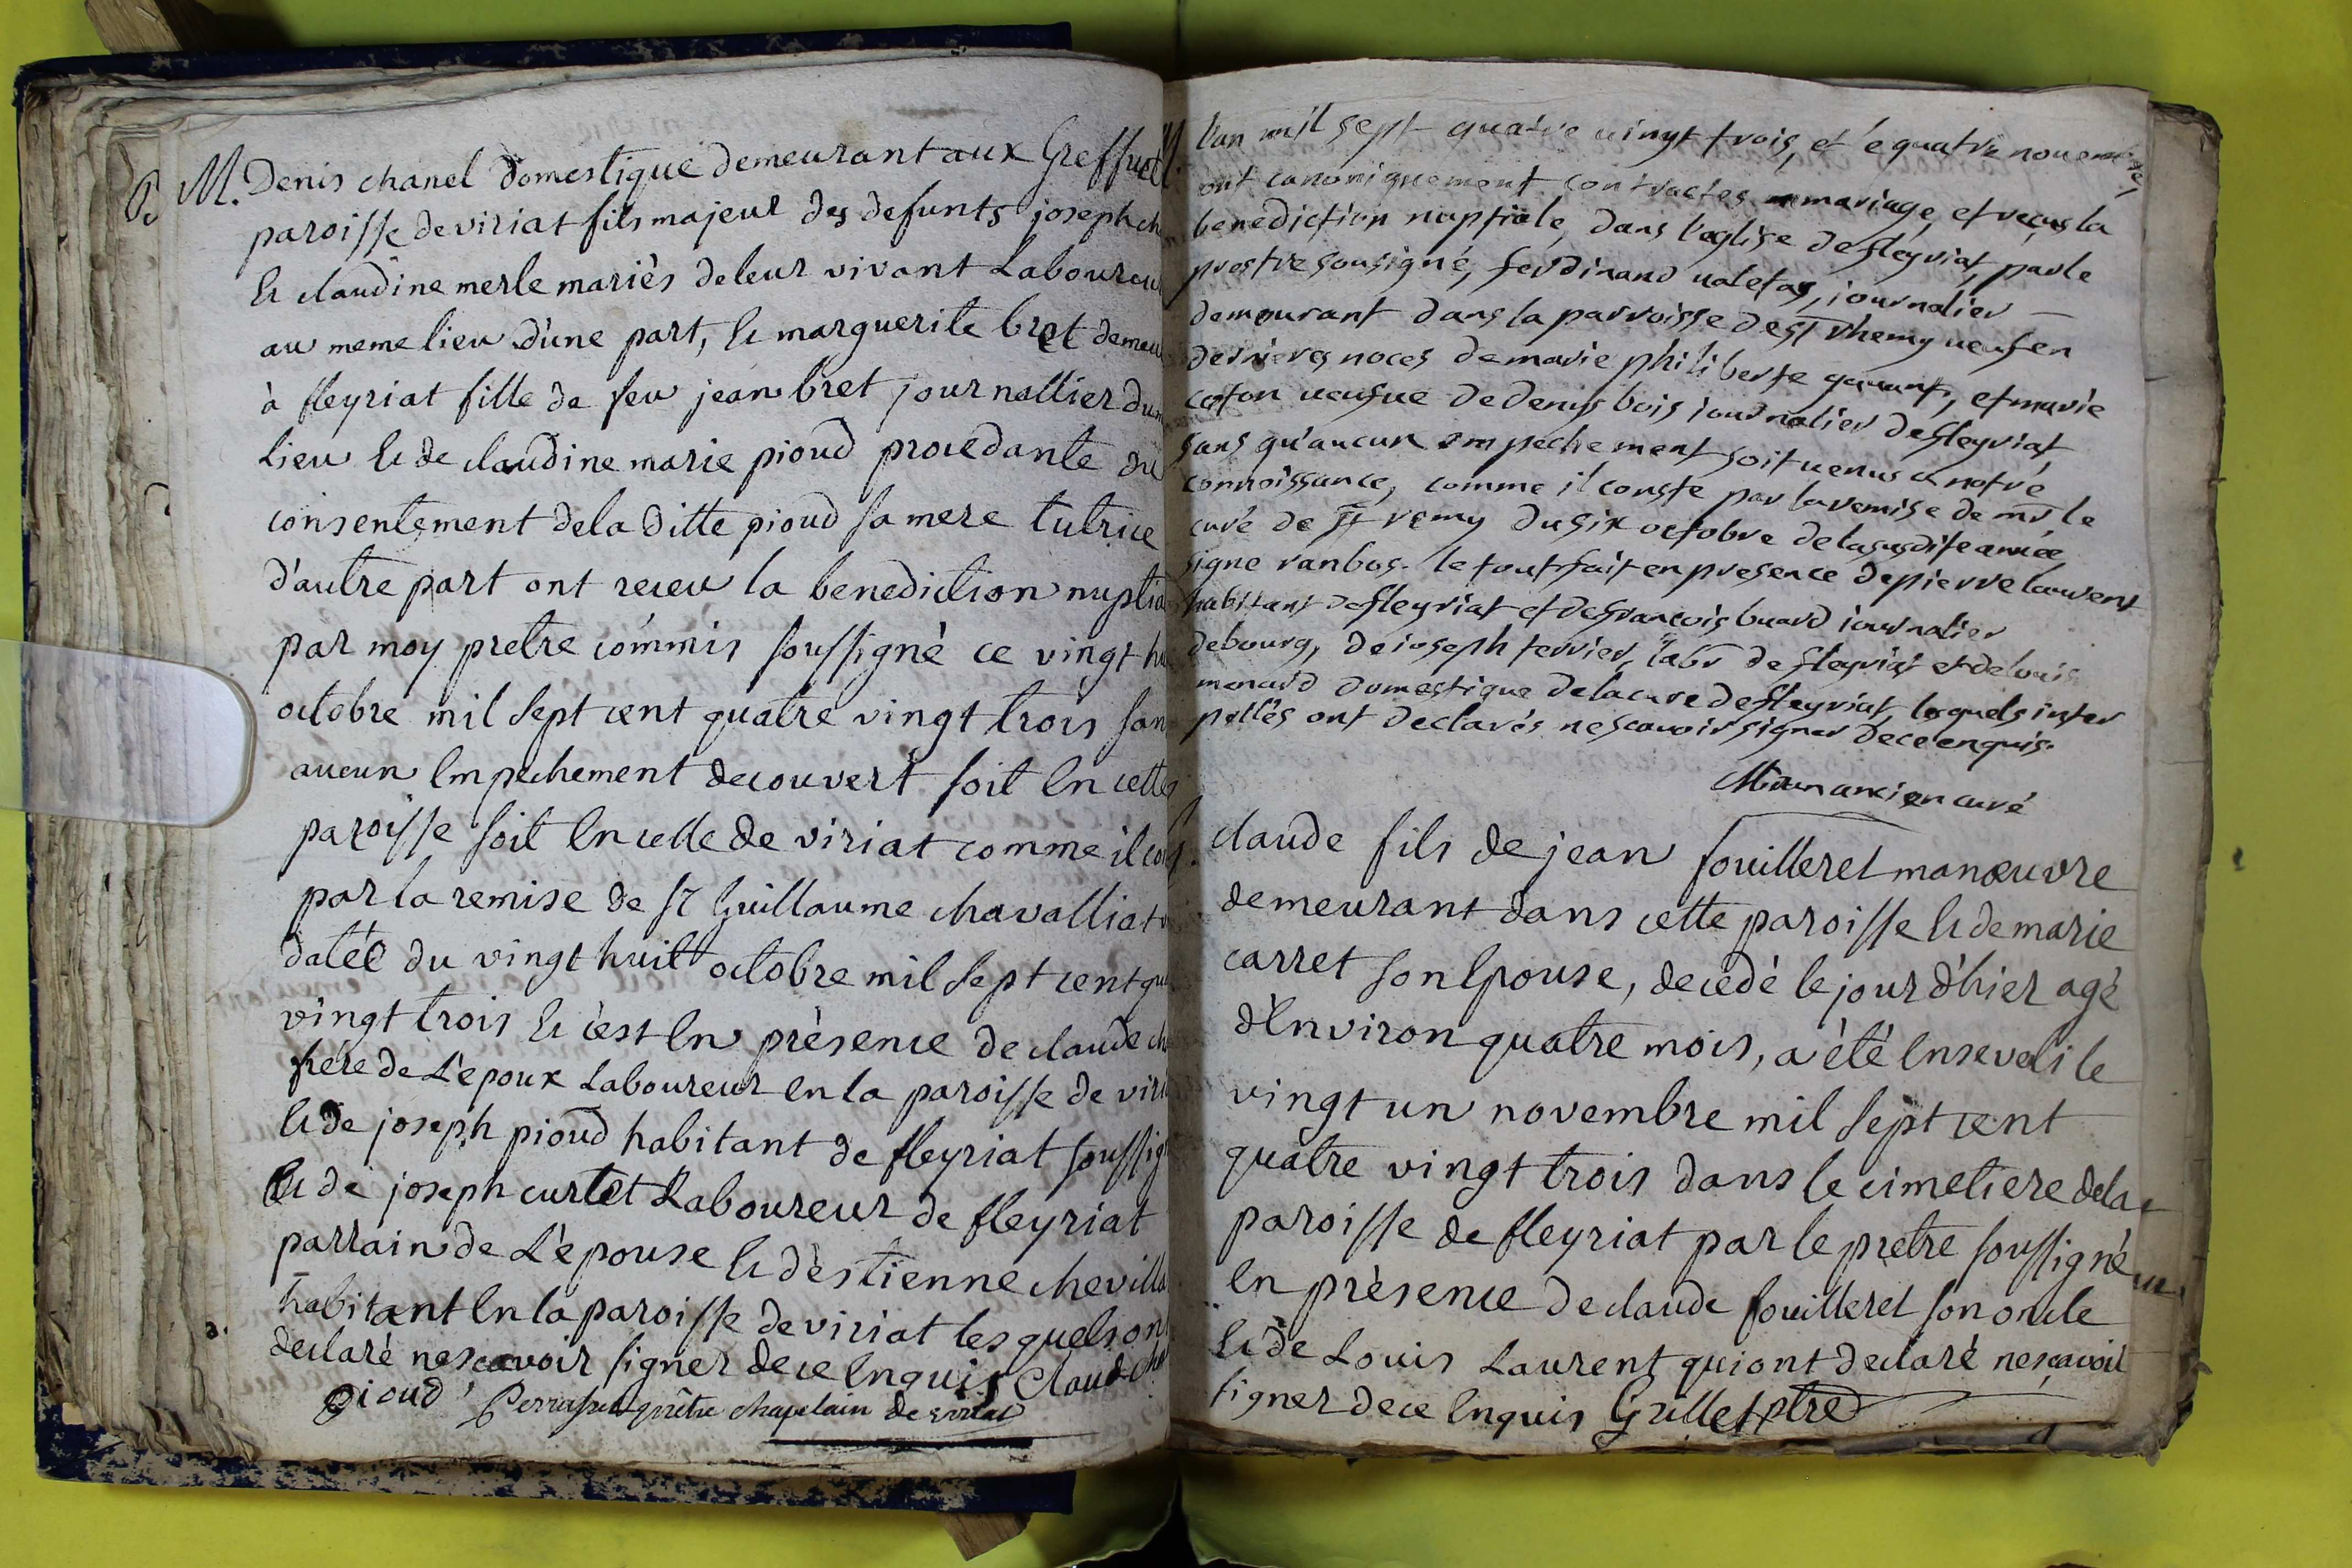 M. Denis chanel domestique demeurant aux Greffuet
paroisse de viriat fils majeur des defunts joseph ch
& claudine merle mariès de leur vivant Laboureur
au meme lieu d'une part, & marguerite bret demeu
à fleyriat fille de feu jean bret journallier dum
lieu & de claudine marie pioud procedante du
consentement de la ditte pioud sa mere tutrice
d'autre part ont receu la benediction nuptia
par moy pretre commis soussigné ce vingt hu
octobre mil sept cent quatre vingt trois san
aucun Empechement decouvert soit En cette
paroisse soit En celle de viriat comme il co
par la remise de sr Guillaume chavalliat
datée du vingt huit octobre mil sept cent qu
vingt trois & c'est En présence de claude ch
frère de L'epoux Laboureur en la paroisse de viri
& de joseph pioud habitant de fleyriat soussig
& de joseph curtet Laboureur de fleyriat
parrain de L'épouse & d'èstienne chevilla
habitant En la paroisse de viriat lesquels on
declaré ne scavoir signer de ce Enquis Claude cha
pioud prêtre chapelain de
M. l'an mil sept quatre vingt trois, et é quatre novembre,
ont canoniquement contractes mariage, et reçus la
benediction nuptiale, dans l'eglise de fleyriat, par le
prestre sousigné, ferdinand valetas, iournalier
demeurant dans la parroisse de st rhemy veuf en
dernieres noces de marie philiberte, et marie
coton veufve de denis bois iournalier de fleyriat
sans qu'aucun empechement soit venus a notre
connoissance, comme il conste par la remise de mr le
curé de st remy du six octobre de la susdite année
signe ranbos. le tout fait en presence de pierre laurent
habitant de fleyriat et de françois buard iournalier
de bourg, de ioseph terrier, labr de fleyriat et de louis
monard domestique de la cure de fleyriat, lesquels inter
pellés ont declarés ne scavoir signer de ce enquis.
ancien curé
claude fils de jean fouilleret manœuvre
demeurant dans cette paroisse & de marie
carret son Epouse, decedé le jour d'hier agé
d'Environ quatre mois, a été Enseveli le
vingt un novembre mil sept cent
quatre vingt trois dans le cimetiere de la
paroisse de fleyriat par le pretre soussigné
En présence de claude fouilleret son oncle
& de Louis Laurent qui ont declaré ne sçavoir
signer de ce Enquis Grillet ptre